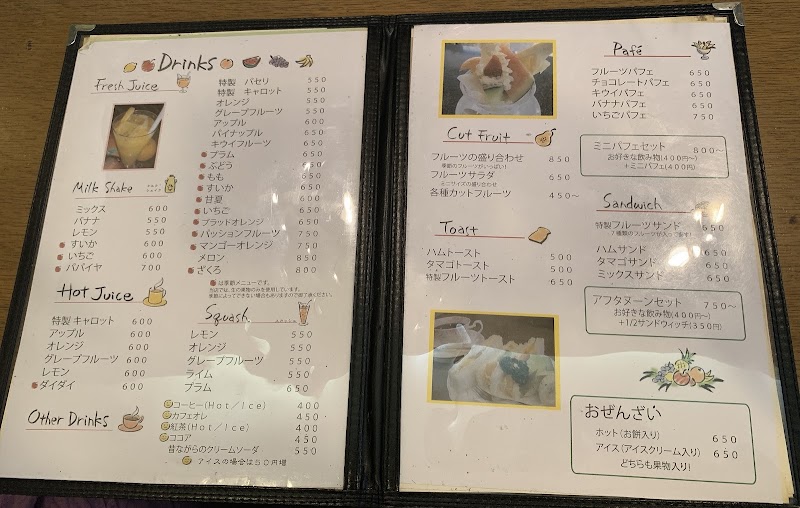 Drinks
Fresh Juice
特製 パセリ 550
特製 キャロット 550
オレンジ 550
グレープフルーツ 550
アップル 600
パイナップル 600
キウイフルーツ 550
プラム 650
ぶどう 650
もも 650
すいか 650
甘夏 650
いちご 650
ブラッドオレンジ 650
パッションフルーツ 750
マンゴーオレンジ 750
メロン 850
ざくろ 800
は季節メニューです。
当店では、生の果物のみを使用しています。
季節によってできない場合もありますので御了承ください。
Milk Shake
ミックス 600
バナナ 550
レモン 550
すいか 600
いちご 600
パパイヤ 700
Hot Juice
特製 キャロット 600
アップル 600
オレンジ 600
グレープフルーツ 600
レモン 600
ダイダイ 600
Squash
レモン 550
オレンジ 550
グレープフルーツ 550
ライム 550
プラム 650
Other Drinks
コーヒー(Hot/Ice) 400
カフェオレ 450
紅茶(Hot/Ice) 400
ココア 450
昔ながらのクリームソーダ 550
アイスの場合は50円増
Pafé
フルーツパフェ 650
チョコレートパフェ 650
キウイパフェ 650
バナナパフェ 650
いちごパフェ 750
ミニパフェセット 800〜
お好きな飲み物(400円〜)
+ミニパフェ(400円)
Cut Fruit
フルーツの盛り合わせ 850
季節のフルーツがいっぱい!
フルーツサラダ 650
ミニサイズの盛り合わせ
各種カットフルーツ 450〜
Sandwich
特製フルーツサンド 650
7種類のフルーツが入ってます!
ハムサンド 650
タマゴサンド 650
ミックスサンド 650
Toast
ハムトースト 500
タマゴトースト 500
特製フルーツトースト 650
アフタヌーンセット 750〜
お好きな飲み物(400円〜)
+1/2サンドウィッチ(350円)
おぜんざい
ホット(お餅入り) 650
アイス(アイスクリーム入り) 650
どちらも果物入り!